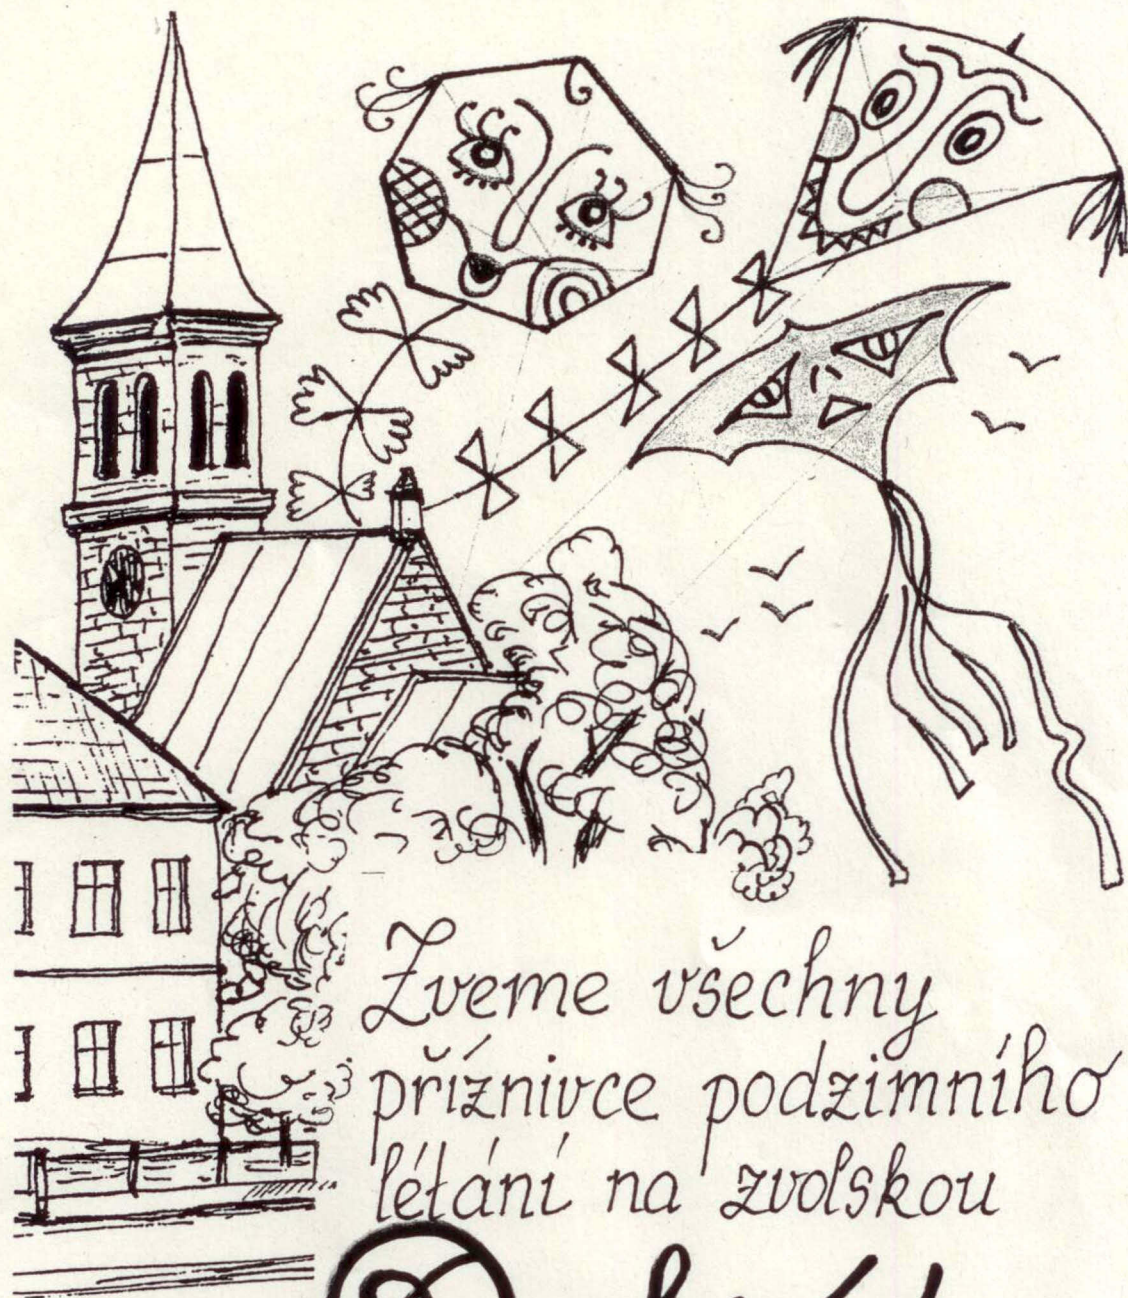 Zveme všechny
příznivce podzimního
létání na zvolskou